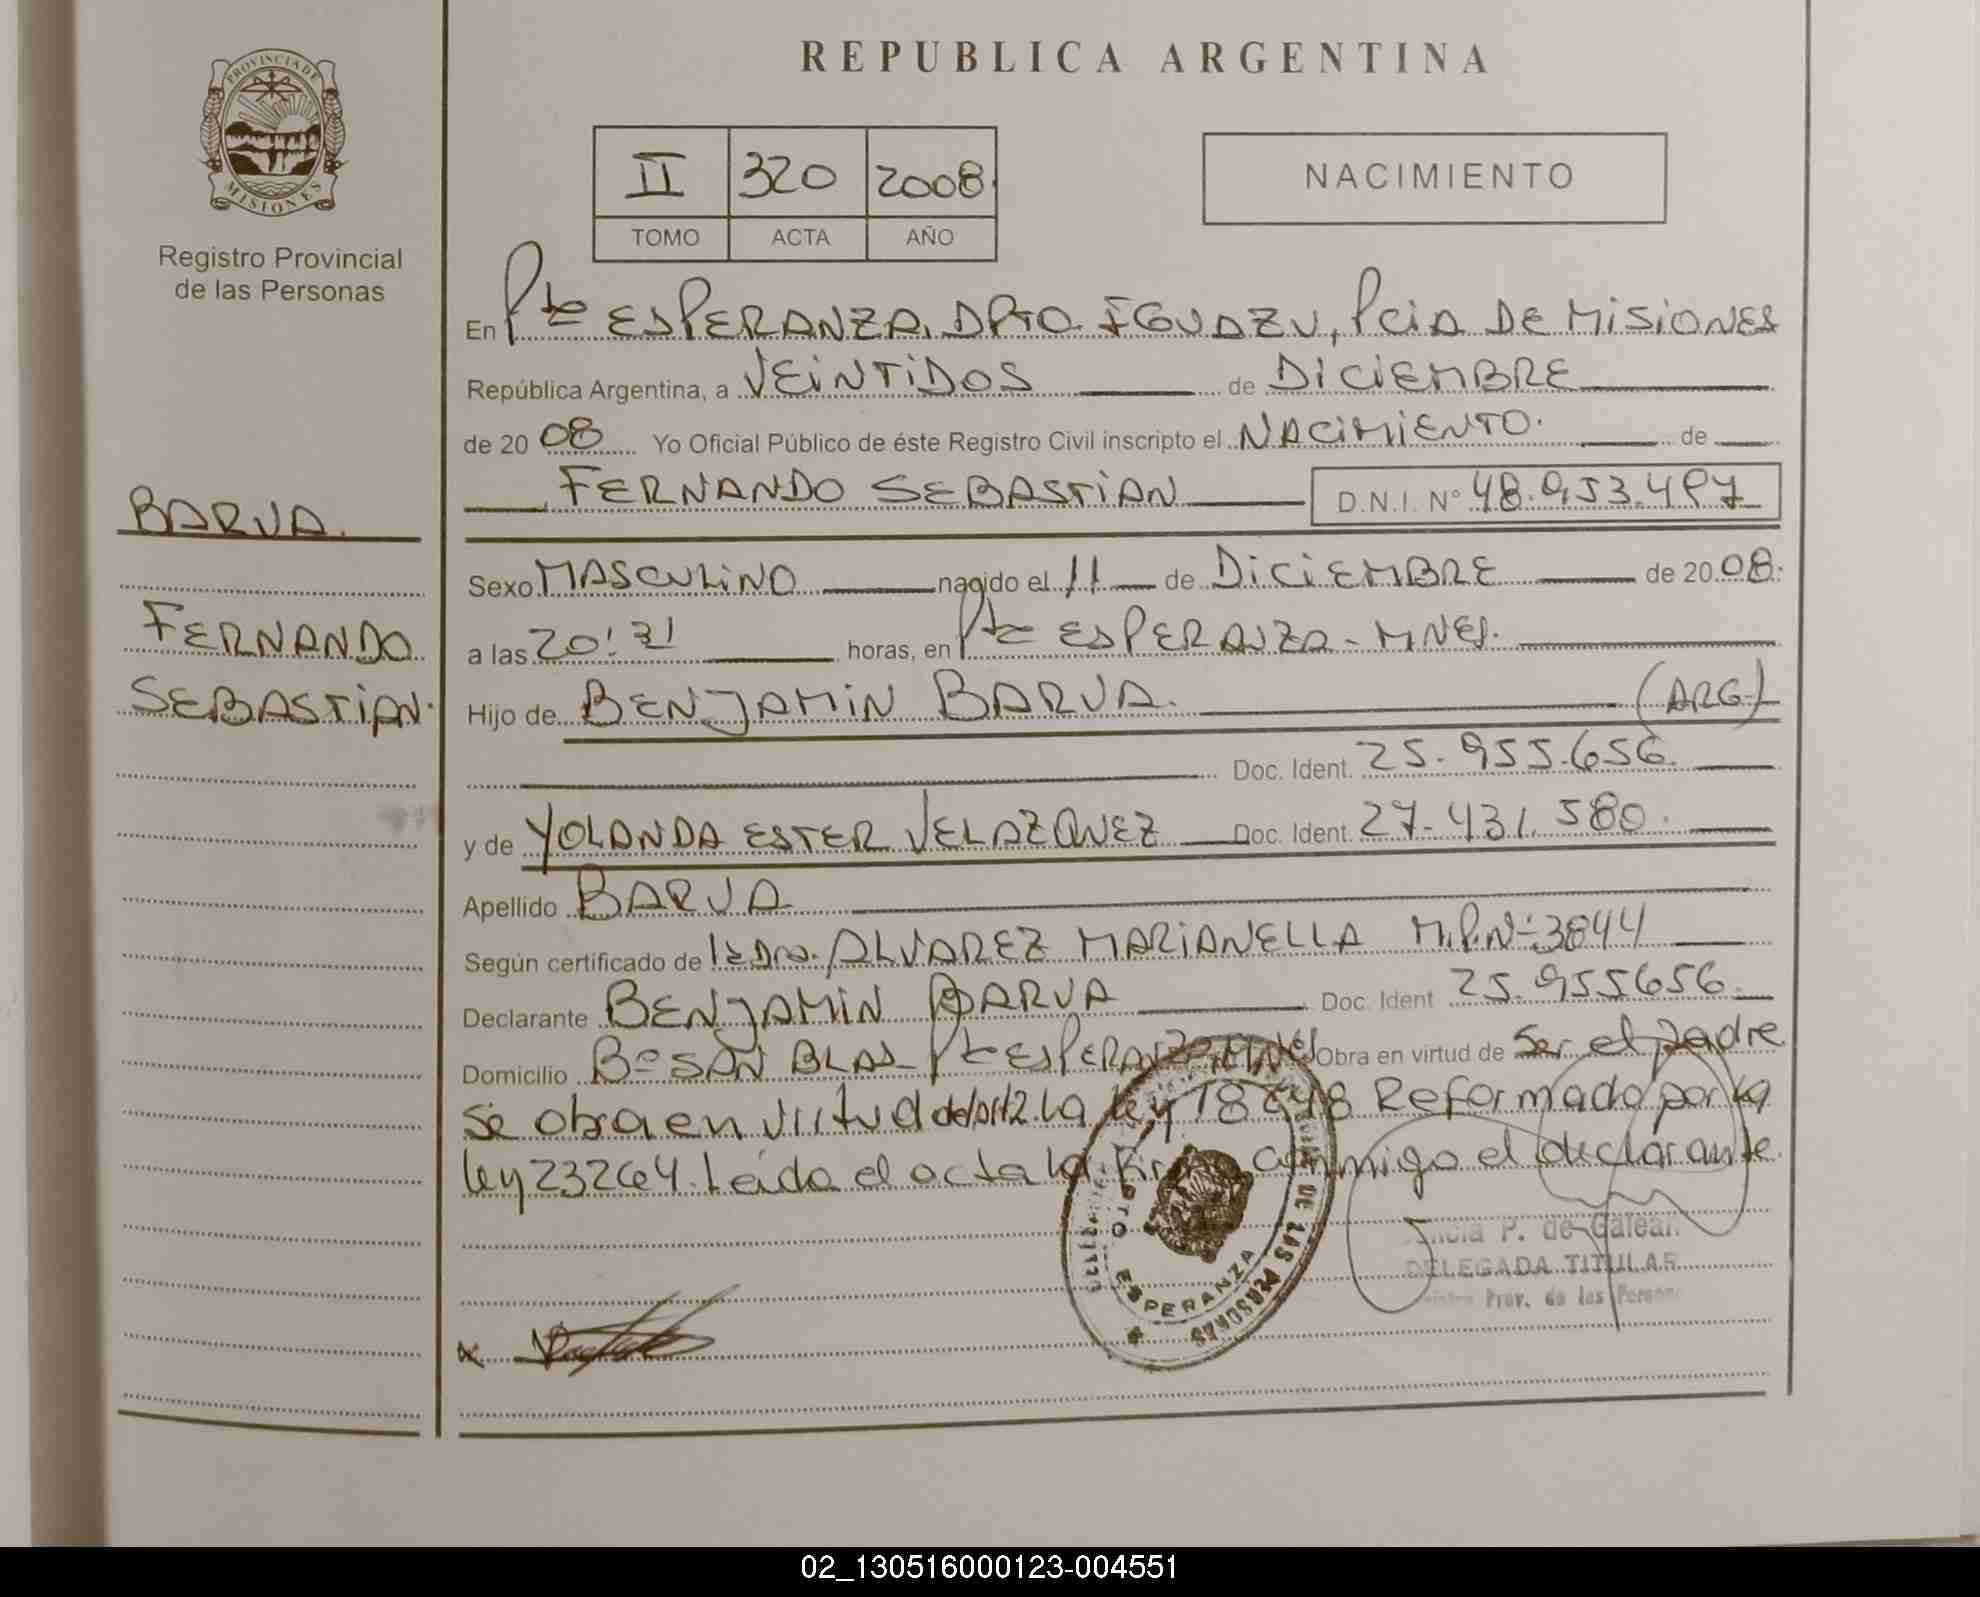 REPUBLICA ARGENTINA
PROVINCIA DE
MISIONES
Registro Provincial
de las Personas
II 320 2008
TOMO ACTA AÑO
NACIMIENTO
En Pto ESPERANZA, DPTO IGUAZU, Pcia DE MISIONES
República Argentina, a VEINTIDOS de DICIEMBRE
de 20 08 Yo Oficial Público de éste Registro Civil inscripto el NACIMIENTO. de
FERNANDO SEBASTIAN D.N.I. Nº 48.953.497
BARUA.
FERNANDO
SEBASTIAN.
Sexo MASCULINO nacido el 11 de DICIEMBRE de 20 08.
a las 20:31 horas, en Pto ESPERANZA - MNES.
Hijo de BENJAMIN BARUA. (ARG.)
Doc. Ident. 25.955.656.
y de YOLANDA ESTER VELAZQUEZ Doc. Ident. 27.431.580.
Apellido BARUA
Según certificado de la Dra. ALVAREZ MARIANELLA M.P.Nº 3844
Declarante BENJAMIN BARUA Doc. Ident 25.955656.
Domicilio Bº SAN BLAS Pto ESPERANZA MNES Obra en virtud de Ser el padre
Se obra en virtud del art 2. La ley 18248 Reformado por la
ley 23264. Leida el acta la firma conmigo el declarante
DE LAS PERSONAS
PTO ESPERANZA
P. de Galean
DELEGADA TITULAR
Prov. de las Person
02_130516000123-004551